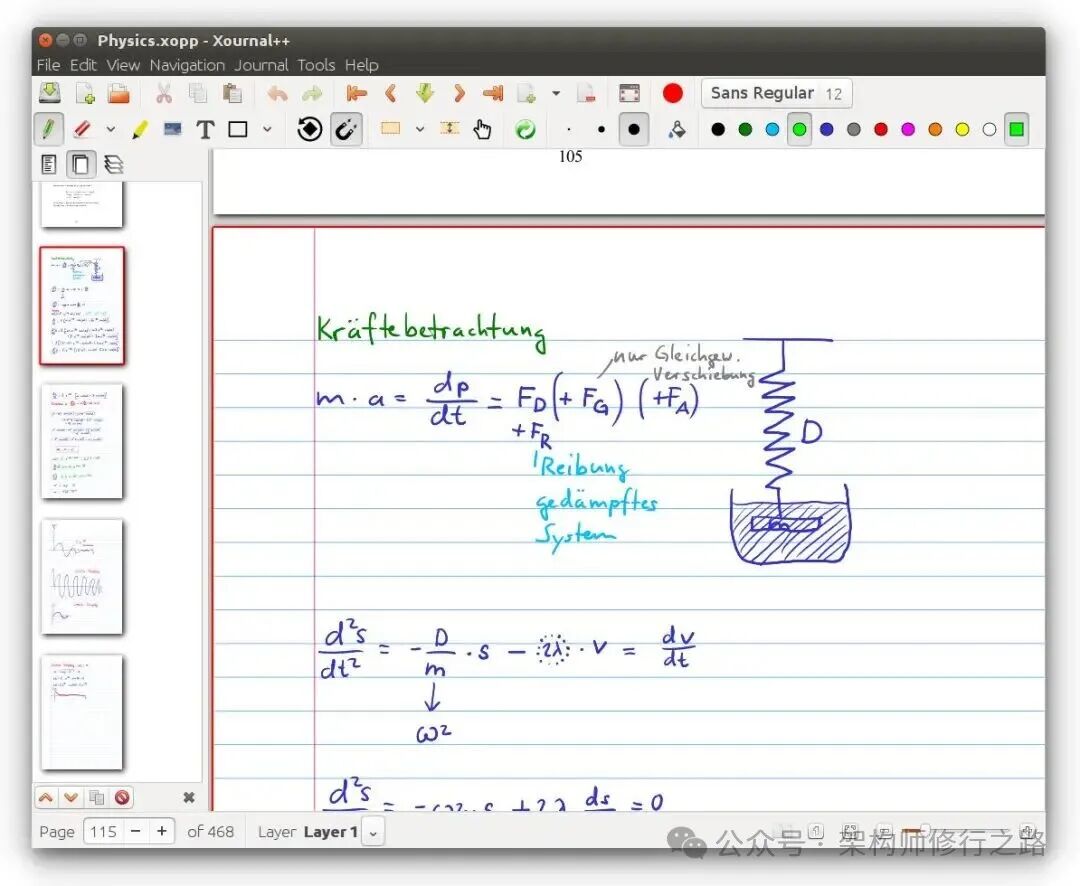 Physics.xopp - Xournal++
File Edit View Navigation Journal Tools Help
Sans Regular 12
T
105
Kräftebetrachtung
nur Gleichgew.
Verschiebung
m · a = dp/dt = F_D (+ F_G) (+F_A)
+ F_R
Reibung
gedämpftes
System
D
m
d²s/dt² = - D/m · s - 2λ · v = dv/dt
↓
ω²
d²s = -ω² · s + 2λ ds = 0
Page 115 - + of 468 Layer Layer 1
公众号 · 架构师修行之路